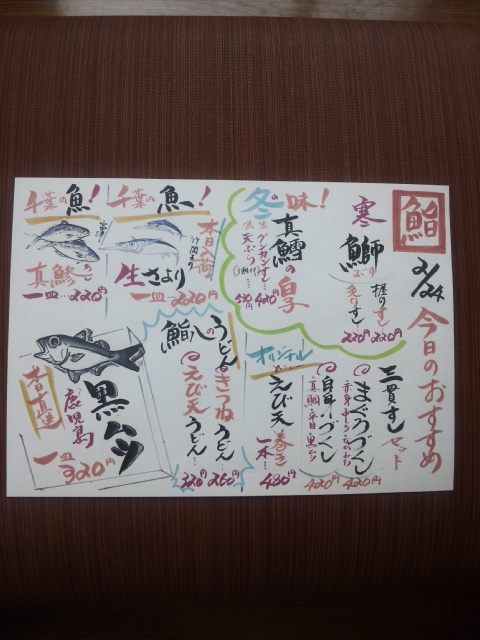 鮨
2/24 今日のおすすめ
寒鰤
ぶり
握りすし 220円
炙りすし 220円
三貫すしセット
まぐろづくし 420円
白身づくし 420円
真鯛 平目 黒ムツ
冬の味！
真鱈の白子
グンカンすし… 420円
天ぷら
オリジナル
えび天巻き
一本… 480円
千葉の魚！
本日入荷
生さより
一皿…220円
千葉の魚！
真鯵 あじ
一皿…220円
鮨八のうどん
きつねうどん… 260円
えび天うどん… 320円
鹿児島
黒ムツ
一皿 320円